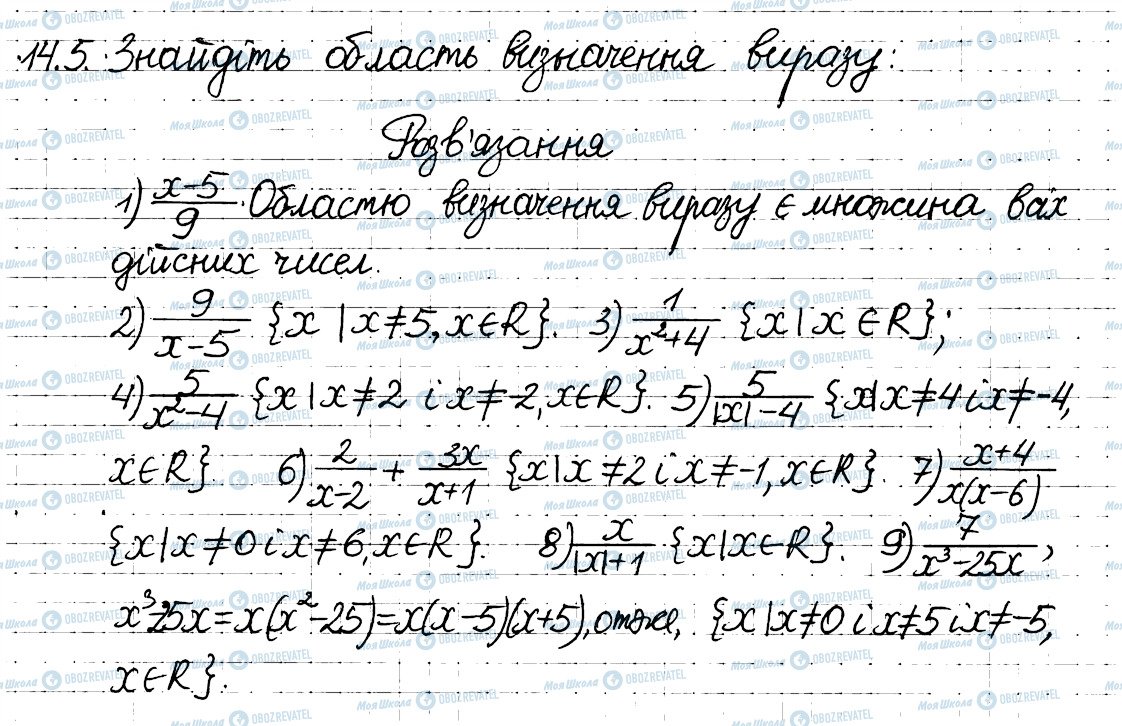 14.5. Знайдіть область визначення виразу:
Розв'язання
1) (x-5)/9. Областю визначення виразу є множина всіх
дійсних чисел.
2) 9/(x-5) {x | x≠5, x∈R}. 3) 1/(x²+4) {x | x∈R};
4) 5/(x²-4) {x | x≠2 і x≠-2, x∈R}. 5) 5/(|x|-4) {x | x≠4 і x≠-4,
x∈R}. 6) 2/(x-2) + 3x/(x+1) {x | x≠2 і x≠-1, x∈R}. 7) (x+4)/(x(x-6))
{x | x≠0 і x≠6, x∈R}. 8) x/(|x|+1) {x | x∈R}. 9) 7/(x³-25x),
x³-25x=x(x²-25)=x(x-5)(x+5), отже, {x | x≠0 і x≠5 і x≠-5,
x∈R}.
МояШкола OBOZREVATEL